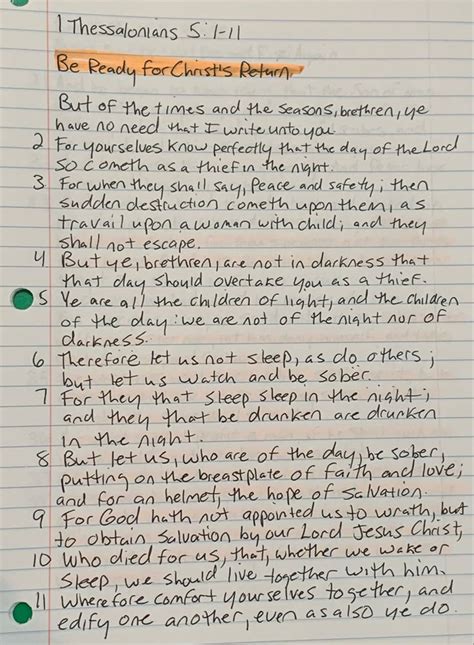 1 Thessalonians 5:1-11
Be Ready for Christ's Return.
But of the times and the seasons, brethren, ye
have no need that I write unto you.
2 For yourselves know perfectly that the day of the Lord
so cometh as a thief in the night.
3 For when they shall say, Peace and safety; then
sudden destruction cometh upon them, as
travail upon a woman with child; and they
shall not escape.
4 But ye, brethren, are not in darkness that
that day should overtake you as a thief.
5 Ye are all the children of light, and the children
of the day: we are not of the night nor of
darkness.
6 Therefore let us not sleep, as do others;
but let us watch and be sober.
7 For they that sleep sleep in the night;
and they that be drunken are drunken
in the night.
8 But let us, who are of the day, be sober,
putting on the breastplate of faith and love;
and for an helmet, the hope of salvation.
9 For God hath not appointed us to wrath, but
to obtain salvation by our Lord Jesus Christ,
10 Who died for us, that, whether we wake or
sleep, we should live together with him.
11 Wherefore comfort yourselves together, and
edify one another, even as also ye do.